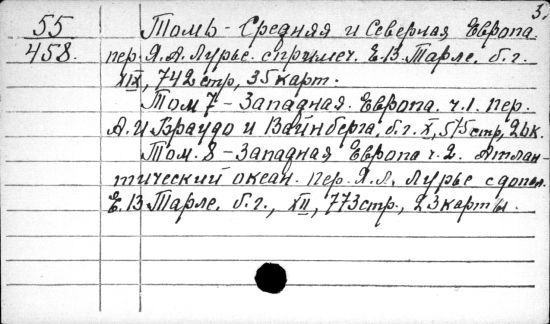 3.
55
458.
Том 6 - Средняя и Северная Европа.
пер. Я.А. Лурье. с примеч. Е.В. Тарле. б.г.
XIX, 742 стр, 35 карт.
Том 7 - Западная Европа. ч.1. Пер.
А.И Браудо и Вайнберга, б.г. X, 575 стр, 26 к.
Том. 8 - Западная Европа ч. 2. Атлан-
тический океан. Пер. Я.Л. Лурье с допол.
Е.В Тарле. б.г., XII, 773 стр., 23 карты.